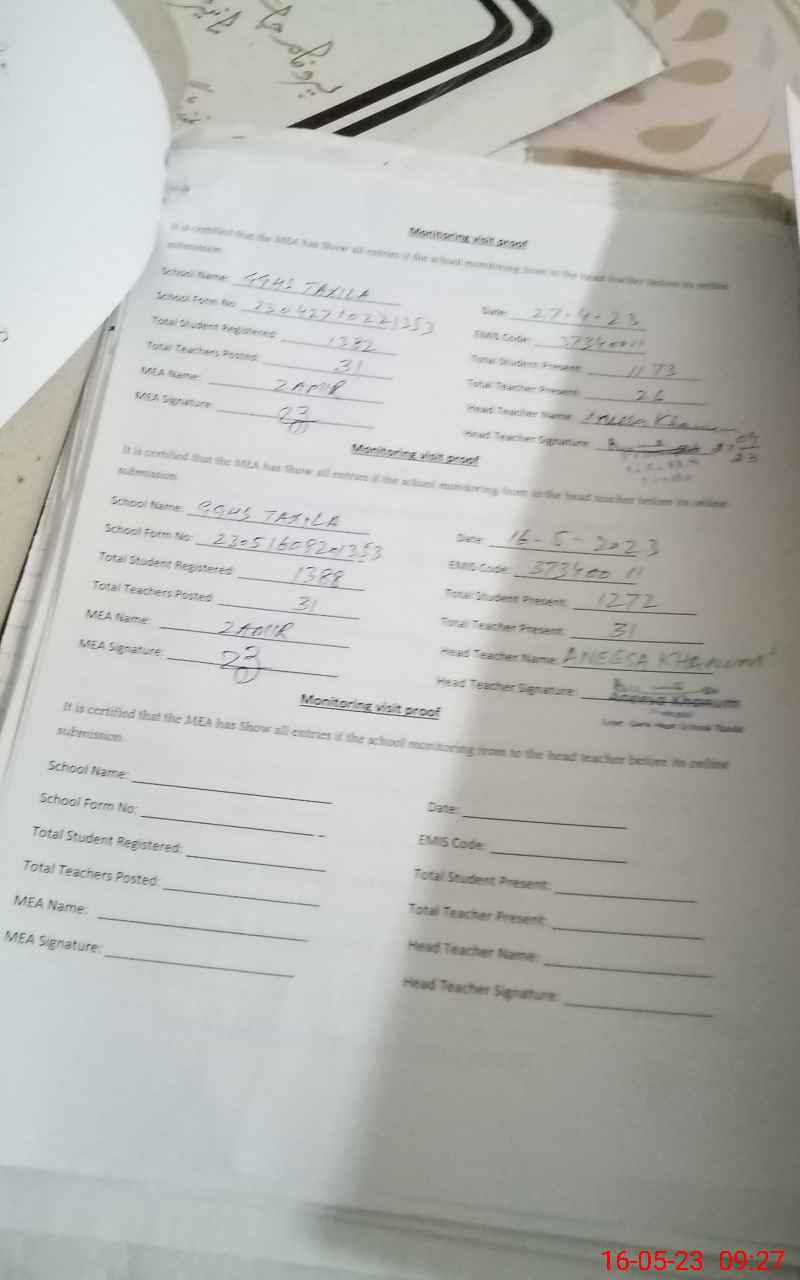 پروفارمہ
Monitoring visit proof
It is certified that the MEA has Show all entries if the school monitoring from to the head teacher before its online
submission.
School Name: GGHS TAXILA
Date: 27-4-23
School Form No: 23042710221353
EMIS Code: 37340011
Total Student Registered: 1382
Total Student Present: 1173
Total Teachers Posted: 31
Total Teacher Present: 26
MEA Name: ZAMIR
Head Teacher Name: Aneesa Khanum
MEA Signature:
Head Teacher Signature:
Monitoring visit proof
It is certified that the MEA has Show all entries if the school monitoring from to the head teacher before its online
submission.
School Name: GGHS TAXILA
Date: 16-5-2023
School Form No: 23051609201353
EMIS Code: 37340011
Total Student Registered: 1388
Total Student Present: 1272
Total Teachers Posted: 31
Total Teacher Present: 31
MEA Name: ZAMIR
Head Teacher Name: ANEESA KHANUM
MEA Signature:
Head Teacher Signature:
Aneesa Khanum
Monitoring visit proof
It is certified that the MEA has Show all entries if the school monitoring from to the head teacher before its online
submission.
School Name:
Date:
School Form No:
EMIS Code:
Total Student Registered:
Total Student Present:
Total Teachers Posted:
Total Teacher Present:
MEA Name:
Head Teacher Name:
MEA Signature:
Head Teacher Signature:
16-05-23 09:27